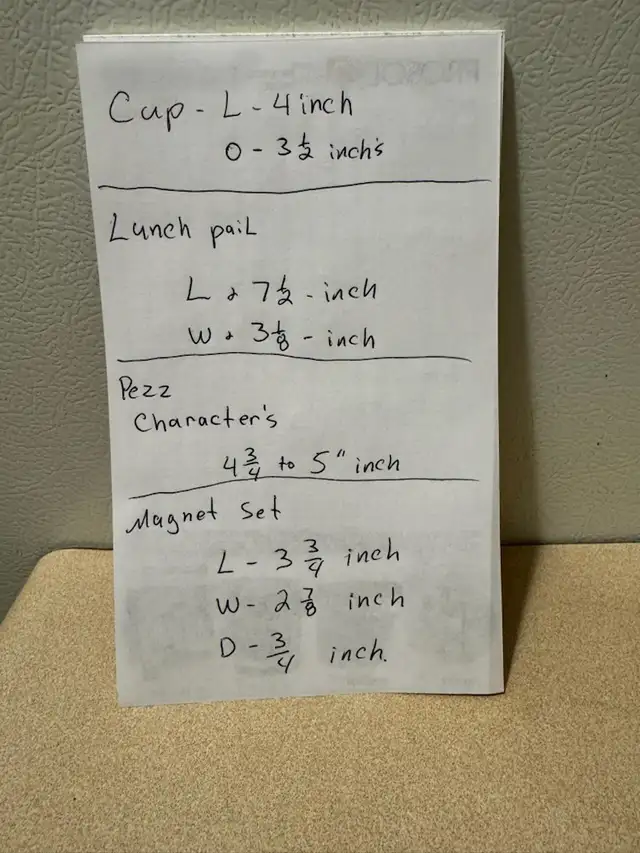 Cup - L - 4 inch
O - 3 1/2 inch's
Lunch pail
L & 7 1/2 - inch
W & 3 1/8 - inch
Pezz
Character's
4 3/4 to 5" inch
Magnet Set
L - 3 3/4 inch
W - 2 7/8 inch
D - 3/4 inch.